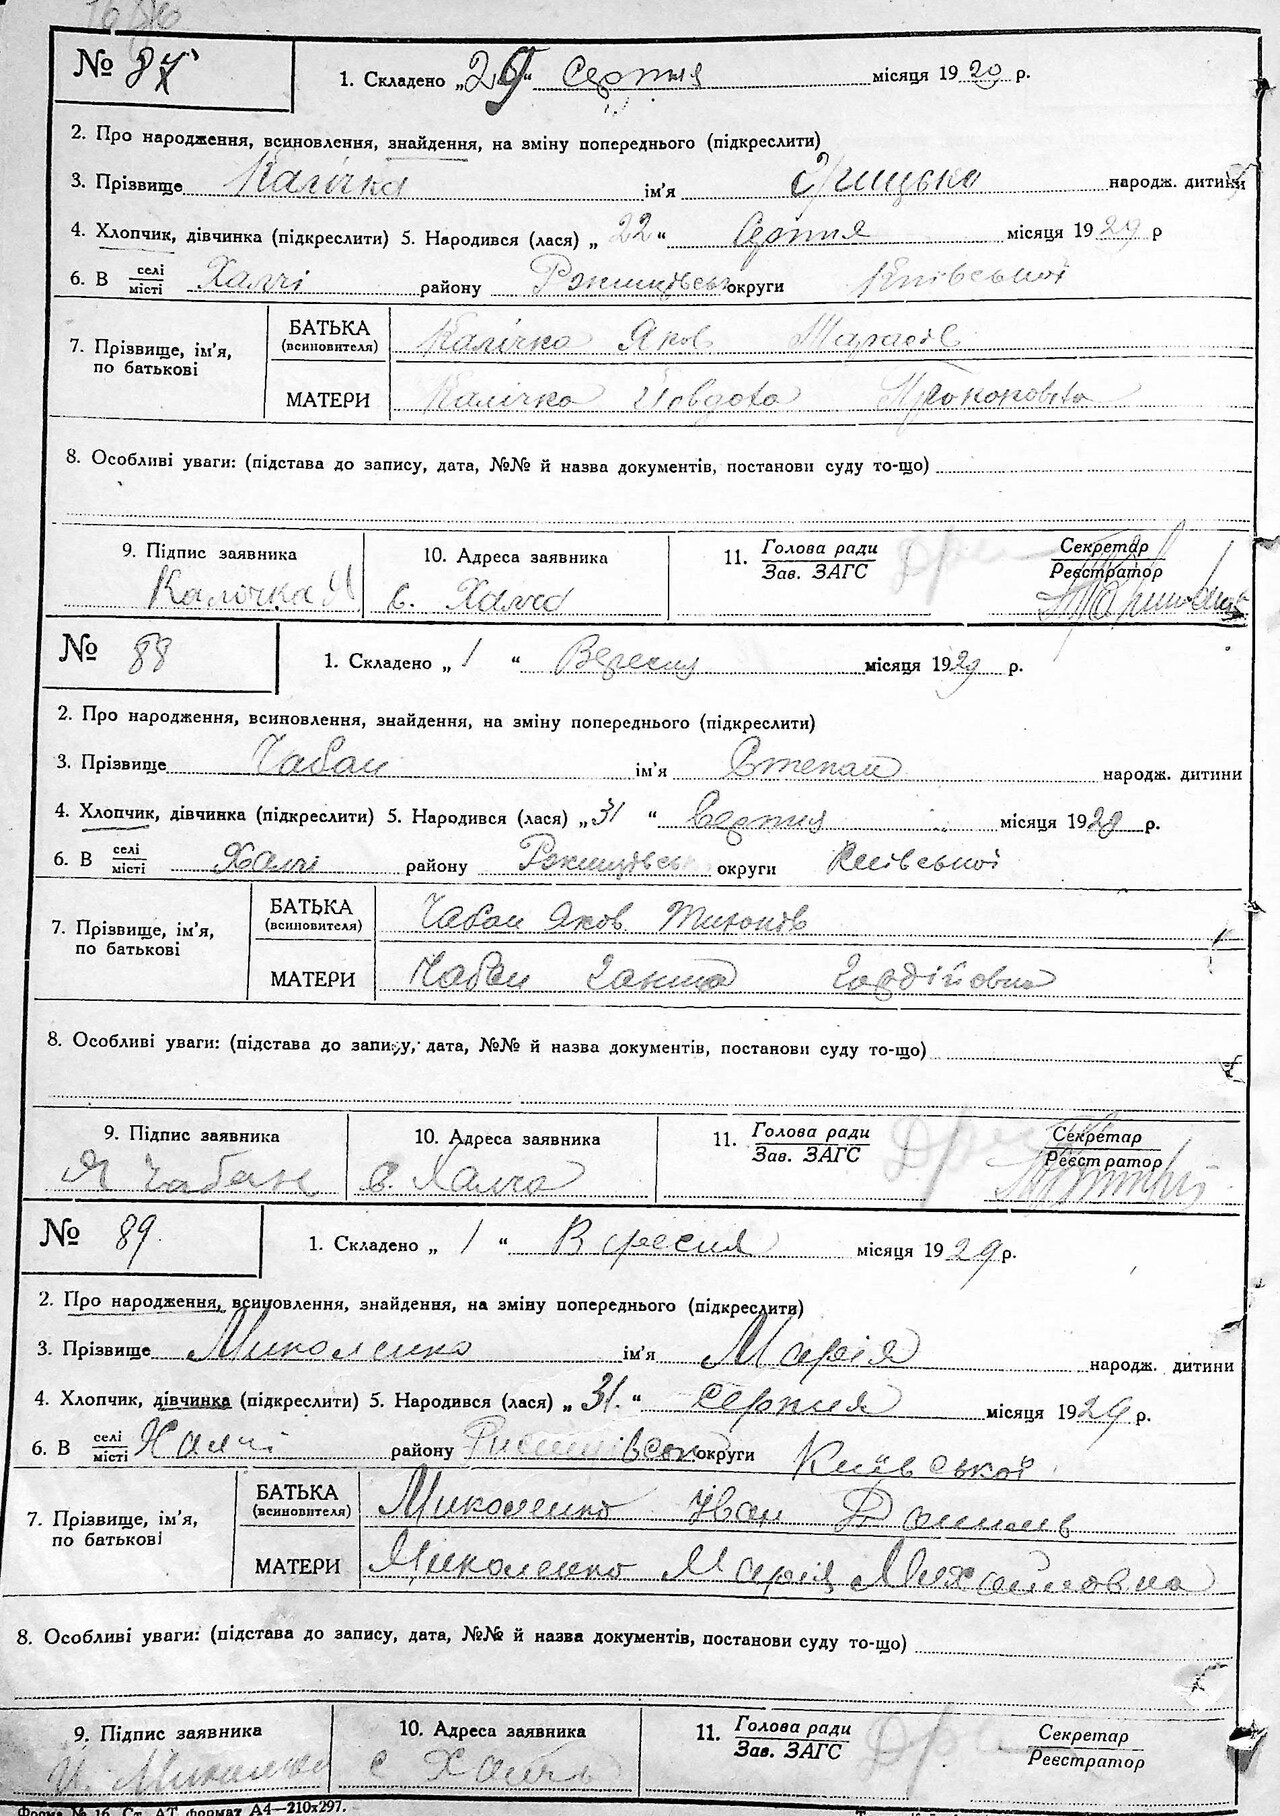 № 87 1. Складено „29“ Серпня місяця 1929 р.
2. Про народження, всиновлення, знайдення, на зміну попереднього (підкреслити)
3. Прізвище Калічка ім'я Грицько народж. дитини
4. Хлопчик, дівчинка (підкреслити) 5. Народився (лася) „22“ Серпня місяця 1929 р
6. В селі Халчі району округи Київської
місті
7. Прізвище, ім'я, по батькові
БАТЬКА (всиновителя) Калічка Яков Тарасів
МАТЕРИ Калічка Йовдоха Прокоповна
8. Особливі уваги: (підстава до запису, дата, №№ й назва документів, постанови суду то-що)
9. Підпис заявника 10. Адреса заявника 11. Голова ради Секретар
Зав. ЗАГС Реєстратор
Калічка Я с. Халча
№ 88 1. Складено „1“ Вересня місяця 1929 р.
2. Про народження, всиновлення, знайдення, на зміну попереднього (підкреслити)
3. Прізвище Чабан ім'я Степан народж. дитини
4. Хлопчик, дівчинка (підкреслити) 5. Народився (лася) „31“ Серпня місяця 1929 р.
6. В селі Халчі району округи Київської
місті
7. Прізвище, ім'я, по батькові
БАТЬКА (всиновителя) Чабан Яков
МАТЕРИ Чабан Ганна Гордійовна
8. Особливі уваги: (підстава до запису, дата, №№ й назва документів, постанови суду то-що)
9. Підпис заявника 10. Адреса заявника 11. Голова ради Секретар
Зав. ЗАГС Реєстратор
Я Чабан с. Халча
№ 89. 1. Складено „1“ Вересня місяця 1929 р.
2. Про народження, всиновлення, знайдення, на зміну попереднього (підкреслити)
3. Прізвище Миколенко ім'я Марія народж. дитини
4. Хлопчик, дівчинка (підкреслити) 5. Народився (лася) „31.“ серпня місяця 1929 р.
6. В селі Халчі району округи Київської
місті
7. Прізвище, ім'я, по батькові
БАТЬКА (всиновителя) Миколенко Іван Данилів
МАТЕРИ Миколенко Марія Михайловна
8. Особливі уваги: (підстава до запису, дата, №№ й назва документів, постанови суду то-що)
9. Підпис заявника 10. Адреса заявника 11. Голова ради Секретар
Зав. ЗАГС Реєстратор
Форма № 16. Ст. АТ формат А4—210х297.